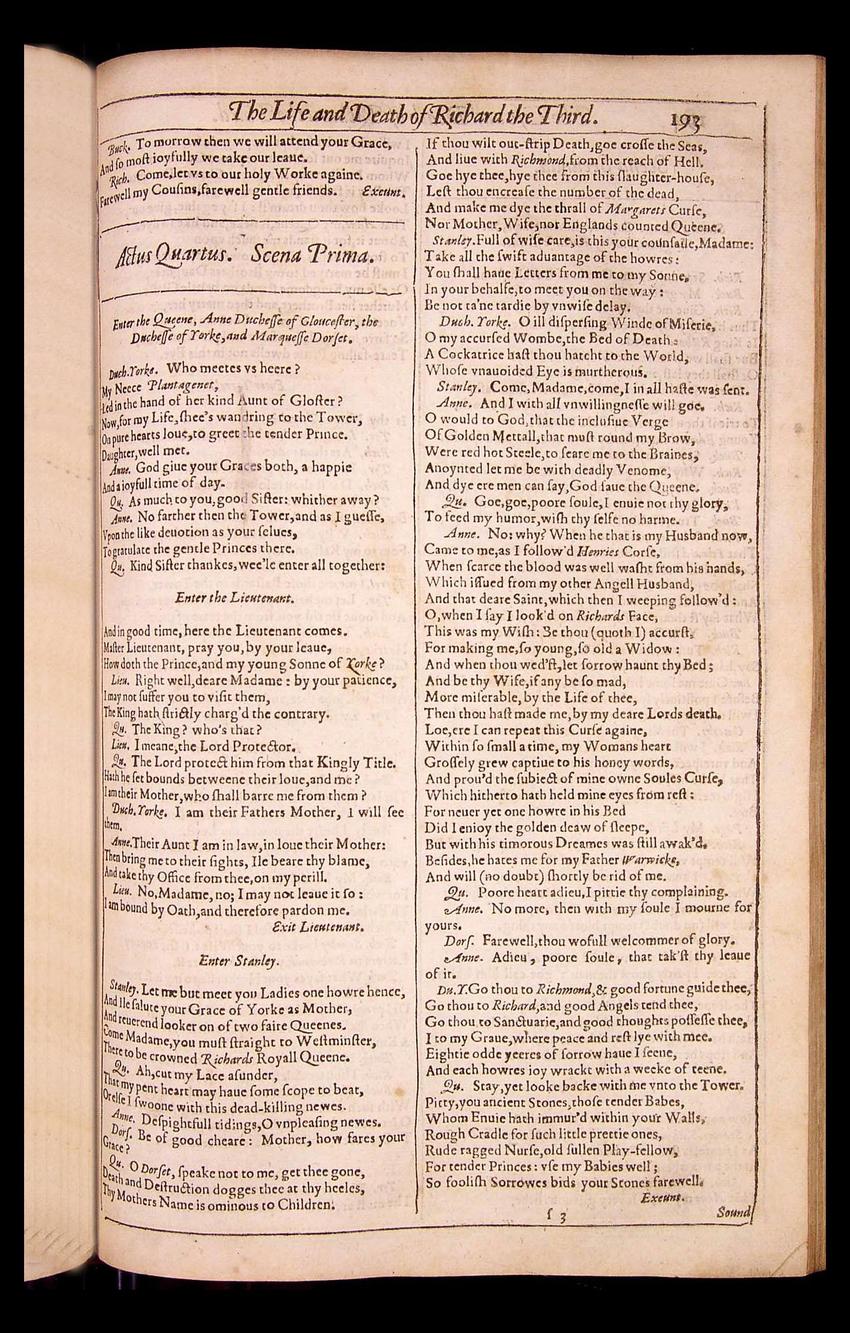 The Life and Death of Richard the Third. 193
Buck. To morrow then we will attend your Grace,
And so most ioyfully we take our leaue.
Rich. Come, let vs to our holy Worke againe.
Farewell my Cousins, farewell gentle friends. Exeunt.
Actus Quartus. Scena Prima.
Enter the Queene, Anne Duchesse of Gloucester, the
Duchesse of Yorke, and Marquesse Dorset.
Duch.Yorke. Who meetes vs heere?
My Neece Plantagenet,
Led in the hand of her kind Aunt of Gloster?
Now, for my Life, shee's wandring to the Tower,
On pure hearts loue, to greet the tender Prince.
Daughter, well met.
Anne. God giue your Graces both, a happie
And a ioyfull time of day.
Qu. As much to you, good Sister: whither away?
Anne. No farther then the Tower, and as I guesse,
Vpon the like deuotion as your selues,
To gratulate the gentle Princes there.
Qu. Kind Sister thankes, wee'le enter all together:
Enter the Lieutenant.
And in good time, here the Lieutenant comes.
Master Lieutenant, pray you, by your leaue,
How doth the Prince, and my young Sonne of Yorke?
Lieu. Right well, deare Madame: by your patience,
I may not suffer you to visit them,
The King hath strictly charg'd the contrary.
Qu. The King? who's that?
Lieu. I meane, the Lord Protector.
Qu. The Lord protect him from that Kingly Title.
Hath he set bounds betweene their loue, and me?
I am their Mother, who shall barre me from them?
Duch.Yorke. I am their Fathers Mother, I will see
them.
Anne. Their Aunt I am in law, in loue their Mother:
Then bring me to their sights, Ile beare thy blame,
And take thy Office from thee, on my perill.
Lieu. No, Madame, no; I may not leaue it so:
I am bound by Oath, and therefore pardon me.
Exit Lieutenant.
Enter Stanley.
Stanley. Let me but meet you Ladies one howre hence,
And Ile salute your Grace of Yorke as Mother,
And reuerend looker on of two faire Queenes.
Come Madame, you must straight to Westminster,
There to be crowned Richards Royall Queene.
Qu. Ah, cut my Lace asunder,
That my pent heart may haue some scope to beat,
Or else I swoone with this dead-killing newes.
Anne. Despightfull tidings, O vnpleasing newes.
Dors. Be of good cheare: Mother, how fares your
Grace?
Qu. O Dorset, speake not to me, get thee gone,
Death and Destruction dogges thee at thy heeles,
Thy Mothers Name is ominous to Children.
If thou wilt out-strip Death, goe crosse the Seas,
And liue with Richmond, from the reach of Hell.
Goe hye thee, hye thee from this slaughter-house,
Lest thou encrease the number of the dead,
And make me dye the thrall of Margarets Curse,
Nor Mother, Wife, nor Englands counted Queene.
Stanley. Full of wise care, is this your counsaile, Madame:
Take all the swift aduantage of the howres:
You shall haue Letters from me to my Sonne,
In your behalfe, to meet you on the way:
Be not ta'ne tardie by vnwise delay.
Duch. Yorke. O ill dispersing Winde of Miserie,
O my accursed Wombe, the Bed of Death:
A Cockatrice hast thou hatcht to the World,
Whose vnauoided Eye is murtherous.
Stanley. Come, Madame, come, I in all haste was sent.
Anne. And I with all vnwillingnesse will goe.
O would to God, that the inclusiue Verge
Of Golden Mettall, that must round my Brow,
Were red hot Steele, to seare me to the Braines,
Anoynted let me be with deadly Venome,
And dye ere men can say, God saue the Queene.
Qu. Goe, goe, poore soule, I enuie not thy glory,
To feed my humor, wish thy selfe no harme.
Anne. No: why? When he that is my Husband now,
Came to me, as I follow'd Henries Corse,
When scarce the blood was well washt from his hands,
Which issued from my other Angell Husband,
And that deare Saint, which then I weeping follow'd:
O, when I say I look'd on Richards Face,
This was my Wish: Be thou (quoth I) accurst,
For making me, so young, so old a Widow:
And when thou wed'st, let sorrow haunt thy Bed;
And be thy Wife, if any be so mad,
More miserable, by the Life of thee,
Then thou hast made me, by my deare Lords death.
Loe, ere I can repeat this Curse againe,
Within so small a time, my Womans heart
Grossely grew captiue to his honey words,
And prou'd the subiect of mine owne Soules Curse,
Which hitherto hath held mine eyes from rest:
For neuer yet one howre in his Bed
Did I enioy the golden deaw of sleepe,
But with his timorous Dreames was still awak'd.
Besides, he hates me for my Father Warwicke,
And will (no doubt) shortly be rid of me.
Qu. Poore heart adieu, I pittie thy complaining.
Anne. No more, then with my soule I mourne for
yours.
Dors. Farewell, thou wofull welcommer of glory.
Anne. Adieu, poore soule, that tak'st thy leaue
of it.
Du.Y. Go thou to Richmond, & good fortune guide thee,
Go thou to Richard, and good Angels tend thee,
Go thou to Sanctuarie, and good thoughts possesse thee,
I to my Graue, where peace and rest lye with mee.
Eightie odde yeeres of sorrow haue I seene,
And each howres ioy wrackt with a weeke of teene.
Qu. Stay, yet looke backe with me vnto the Tower.
Pitty, you ancient Stones, those tender Babes,
Whom Enuie hath immur'd within your Walls,
Rough Cradle for such little prettie ones,
Rude ragged Nurse, old sullen Play-fellow,
For tender Princes: vse my Babies well;
So foolish Sorrowes bids your Stones farewell.
Exeunt.
s 3 Sound